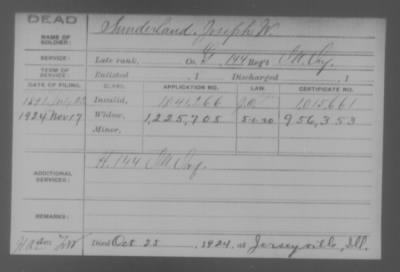 DEAD
NAME OF SOLDIER: Sunderland, Joseph W.
SERVICE: Late rank, Co. H, 144 Reg't Ill. Inf.
TERM OF SERVICE: Enlisted , 1 Discharged , 1
DATE OF FILING. CLASS. APPLICATION NO. LAW. CERTIFICATE NO.
1891 Invalid, 1,041,266 1,015,661
1924 Nov 17 Widow, 1,225,705 5-1-20 956,353
Minor,
ADDITIONAL SERVICES: H. 144 Ill. Inf.
REMARKS:
Died Oct 25, 1924, at Jerseyville, Ill.